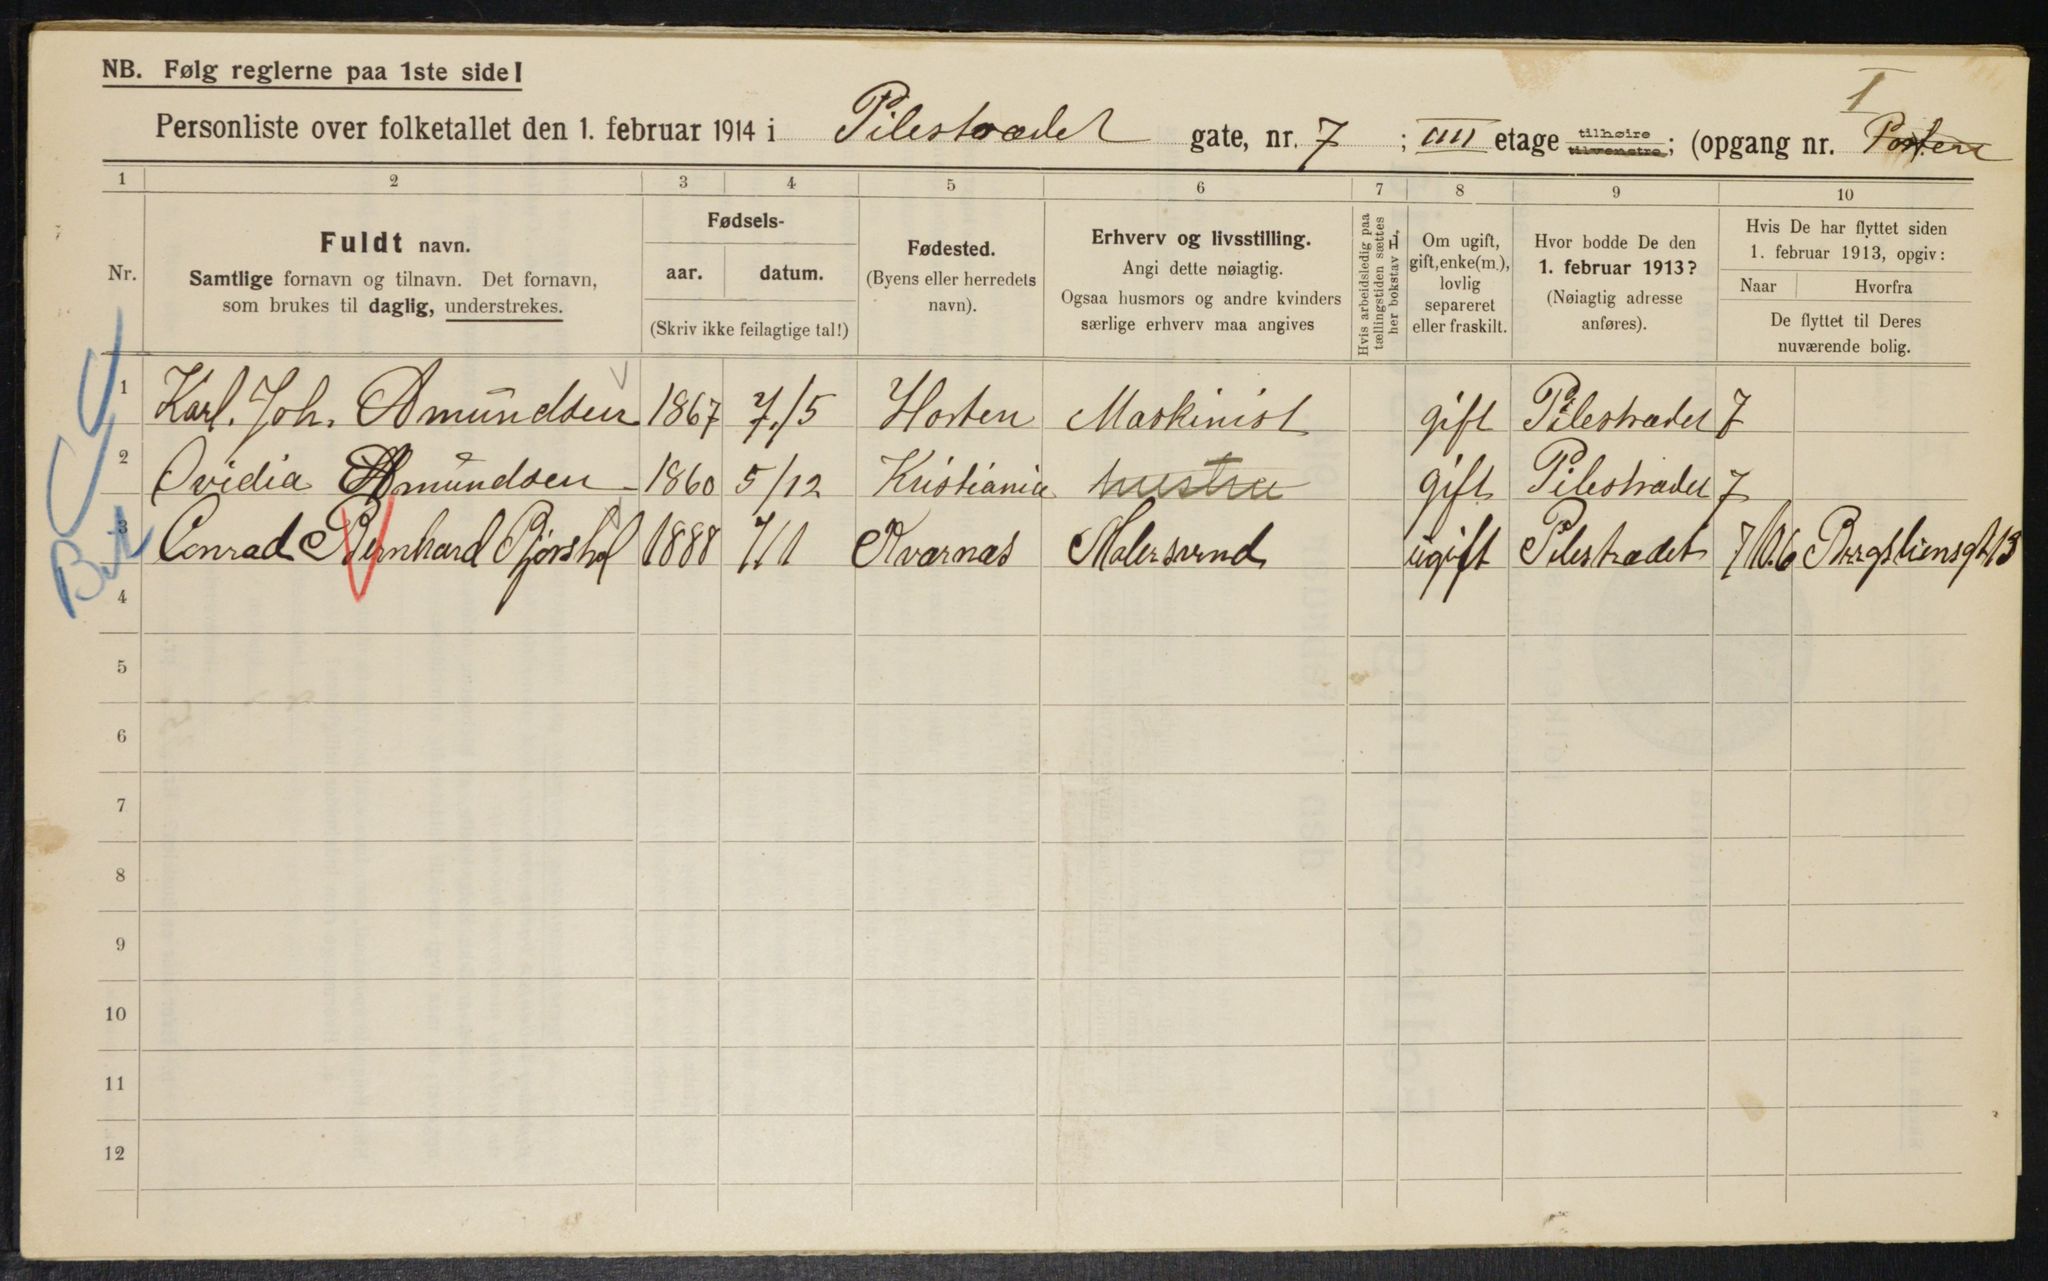 NB. Følg reglerne paa 1ste side!
I
Personliste over folketallet den 1. februar 1914 i Pilestrædet gate, nr. 7 ; IIII etage tilhøire tilvenstre; (opgang nr.
1 2 3 4 5 6 7 8 9 10
Nr.
Fuldt navn.
Samtlige fornavn og tilnavn. Det fornavn,
som brukes til daglig, understrekes.
Fødsels-
aar. datum.
(Skriv ikke feilagtige tal!)
Fødested.
(Byens eller herredets
navn).
Erhverv og livsstilling.
Angi dette nøiagtig.
Ogsaa husmors og andre kvinders
særlige erhverv maa angives
Hvis arbeidsledig paa
tællingstiden sættes
her bokstav H.
Om ugift,
gift, enke(m.),
lovlig
separeret
eller fraskilt.
Hvor bodde De den
1. februar 1913?
(Nøiagtig adresse
anføres).
Hvis De har flyttet siden
1. februar 1913, opgiv:
Naar Hvorfra
De flyttet til Deres
nuværende bolig.
1 Karl. Joh. Amundsen 1867 7/5 Horten Maskinist gift Pilestrædet 7
2 Ovidia Amundsen 1860 5/12 Kristiania hustru gift Pilestrædet 7
3 Conrad Bernhard 1888 7/1 Kvernæs Malersvend ugift Pilestrædet 7 10.6 Bergsliensgt 13
4
5
6
7
8
9
10
11
12